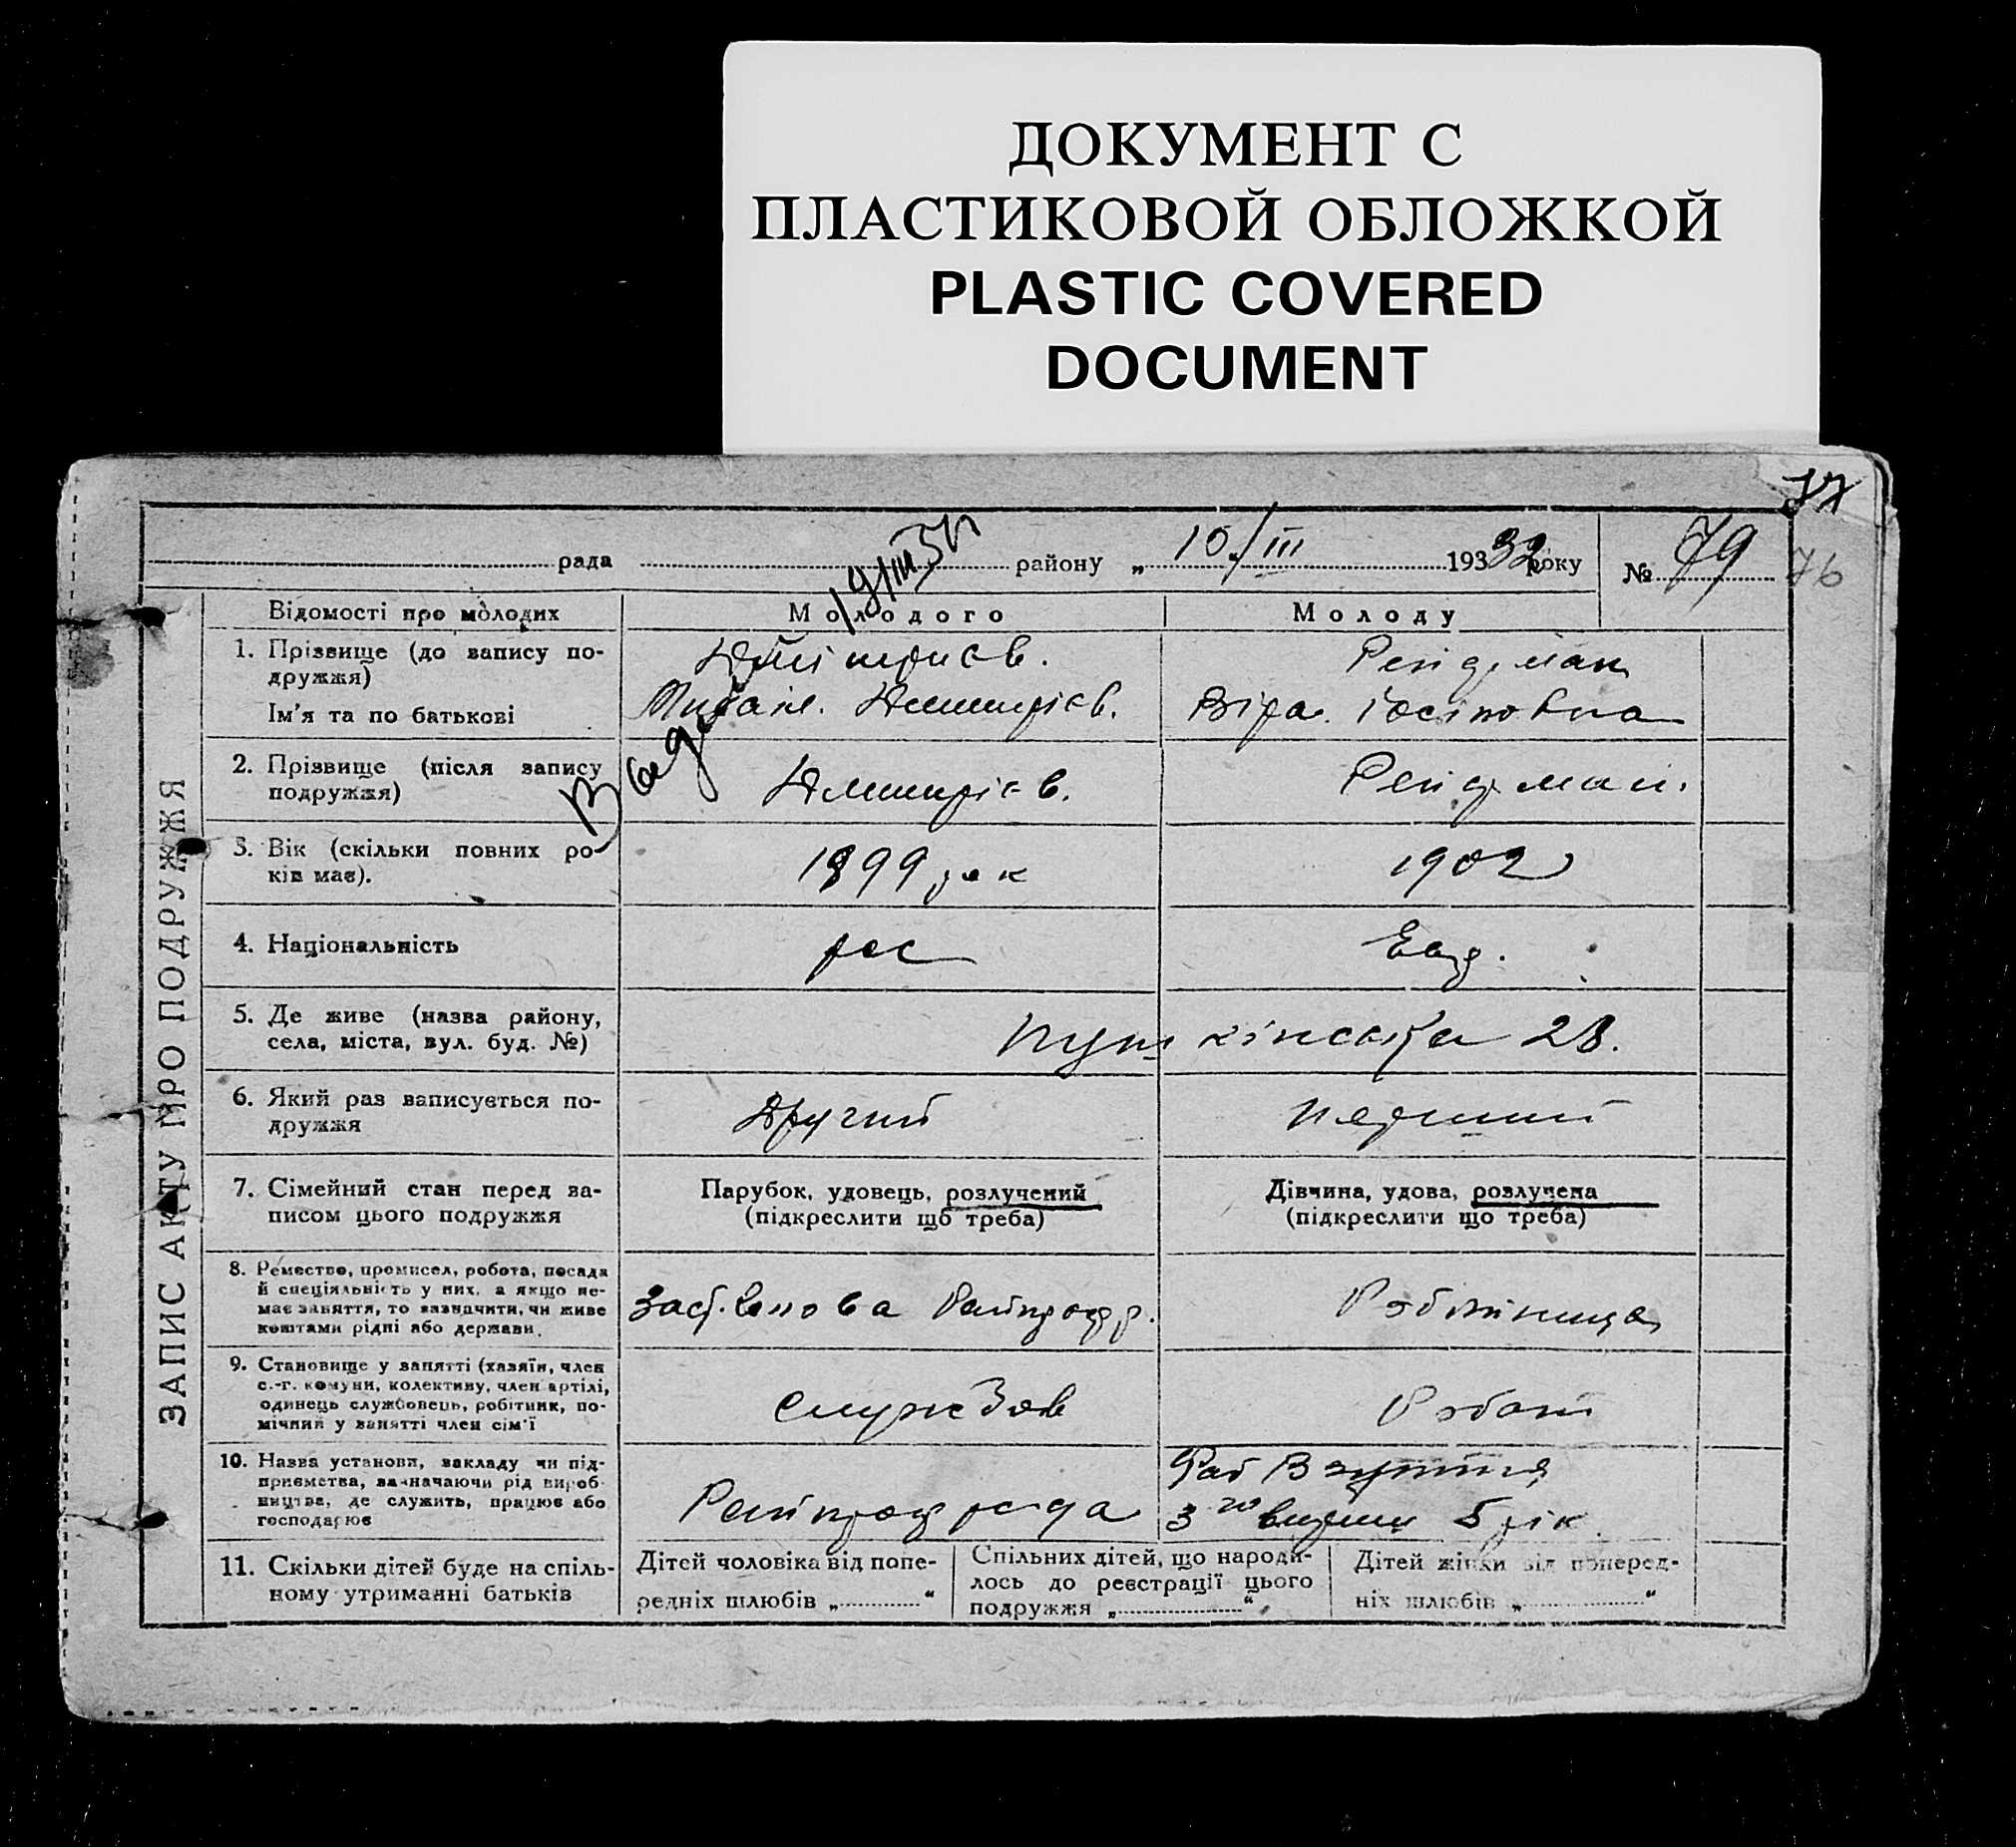 ДОКУМЕНТ С
ПЛАСТИКОВОЙ ОБЛОЖКОЙ
PLASTIC COVERED
DOCUMENT
77
рада района району „ 10/III 193 32 року № 79 76
ЗАПИС АКТУ ПРО ПОДРУЖЖЯ
Відомості про молодих Молодого Молоду
1. Прізвище (до запису по-
дружжя)
Ім'я та по батькові
Рейдман
Віра. Іосіповна
2. Прізвище (після запису
подружжя)
Дмитрієв. Рейдман.
3. Вік (скільки повних ро-
ків має).
1899 рок 1902
4. Національність
рос Євр.
5. Де живе (назва району,
села, міста, вул. буд. №)
Пушкінська 28.
6. Який раз записується по-
дружжя
Другий Перший
7. Сімейний стан перед за-
писом цього подружжя
Парубок, удовець, розлучений
(підкреслити що треба)
Дівчина, удова, розлучена
(підкреслити що треба)
8. Ремество, промисел, робота, посада
й спеціяльність у них, а якщо не-
має заняття, то зазначити, чи живе
коштами рідні або держави.
Робітниця
9. Становище у занятті (хазяїн, член
с.-г. комуни, колективу, член артілі,
одинець службовець, робітник, по-
мічний у занятті член сім'ї
Робот
10. Назва установи, закладу чи під-
приємства, зазначаючи рід вироб-
ництва, де служить, працює або
господарює
Фаб Взуття
11. Скільки дітей буде на спіль-
ному утриманні батьків
Дітей чоловіка від попе-
редніх шлюбів „ “
Спільних дітей, що народи-
лось до реєстрації цього
подружжя „ “
Дітей жінки від поперед-
ніх шлюбів „ “